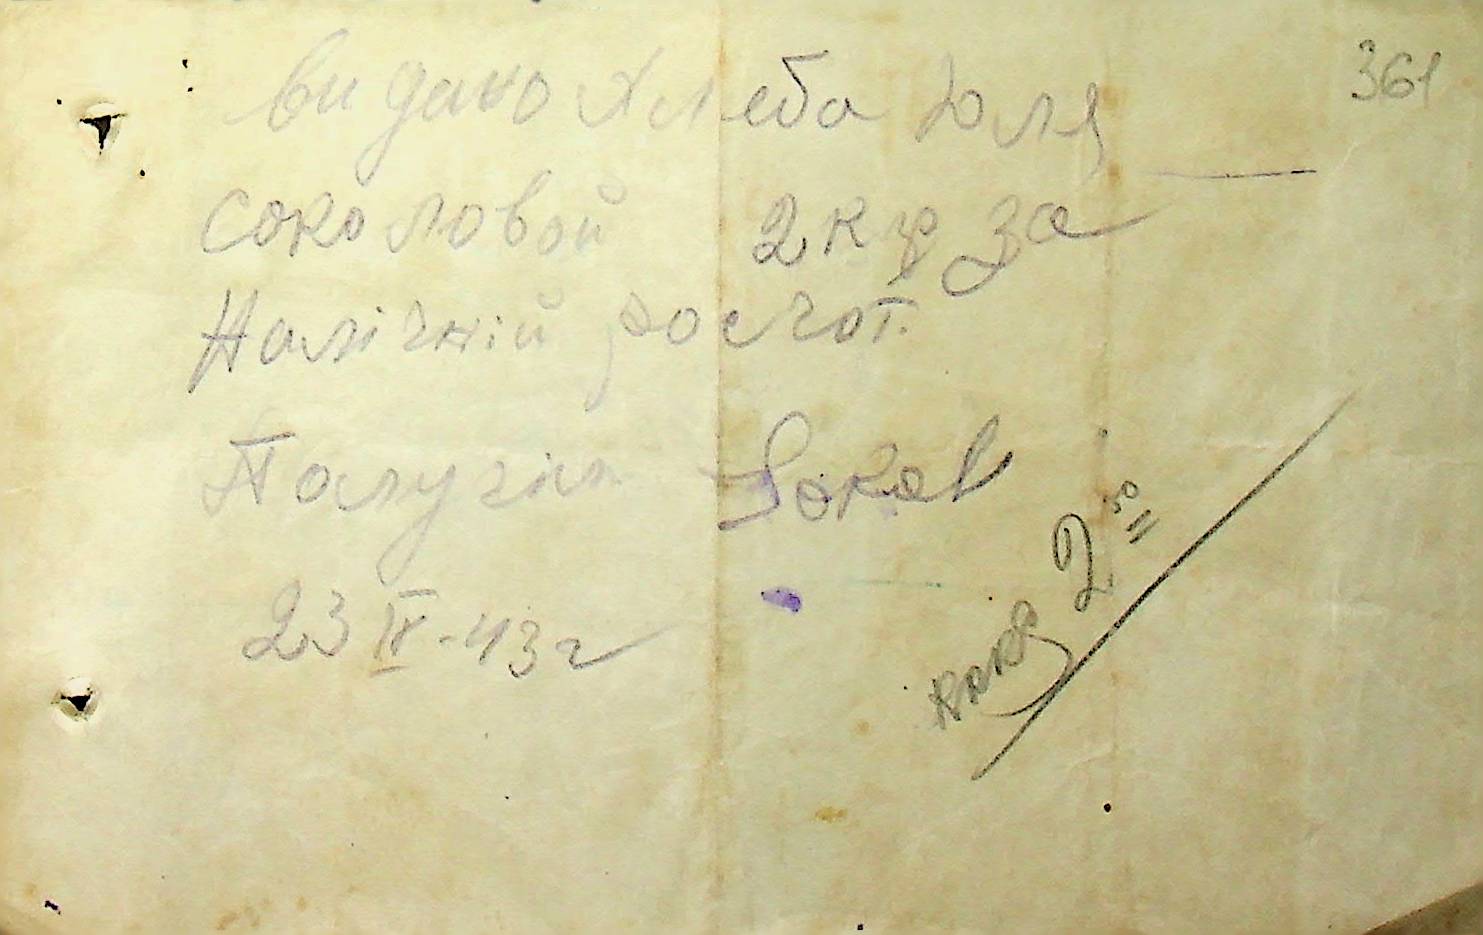 361
видано хлеба для
соколовой 2 кгр за
Налічній росчот.
Палучіл Соков
23 IV - 43 г
2 50